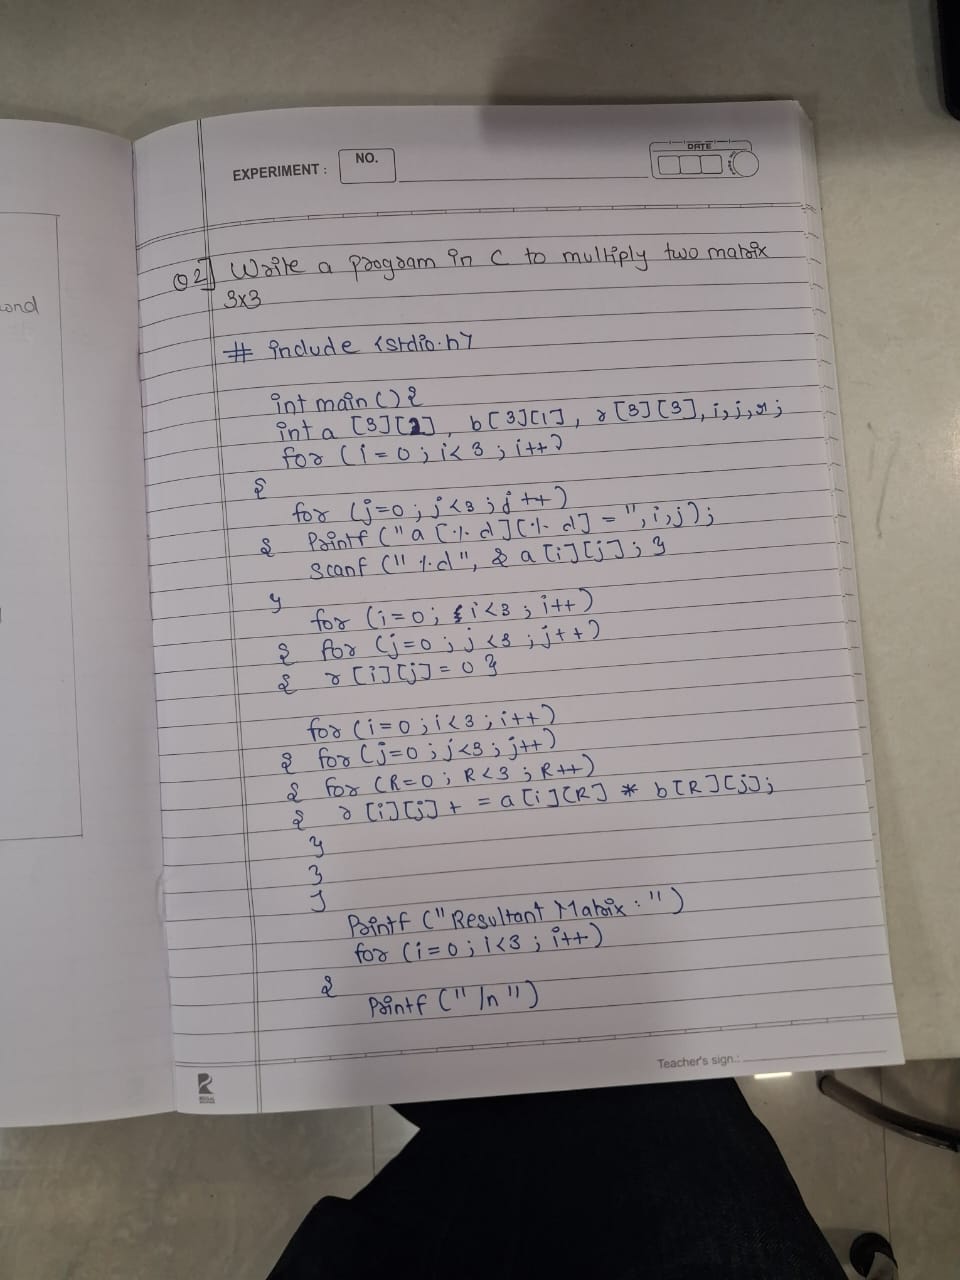 EXPERIMENT :
NO.
DATE
Q2] Write a program in C to multiply two matrix
3x3
# include <stdio.h>
int main () {
int a [3][2], b[3][1], r[3][3], i, j, r;
for (i = 0; i< 3 ; i++)
{
for (j=0; j<3 ; j ++)
printf ("a [%d][%d] = ", i,j);
{ scanf (" %d", & a [i][j]; }
}
for (i=0; i<3 ; i++)
{ for (j=0 ; j <3 ; j++)
{ r [i][j] = 0 }
for (i=0 ; i<3 ; i++)
{ for (j=0 ; j<3 ; j++)
{ for (R=0 ; R<3 ; R++)
{ r [i][j] + = a[i][R] * b[R][j];
}
}
}
printf (" Resultant Matrix : ")
for (i=0 ; i<3 ; i++)
{
printf (" /n ")
Teacher's sign.:
and